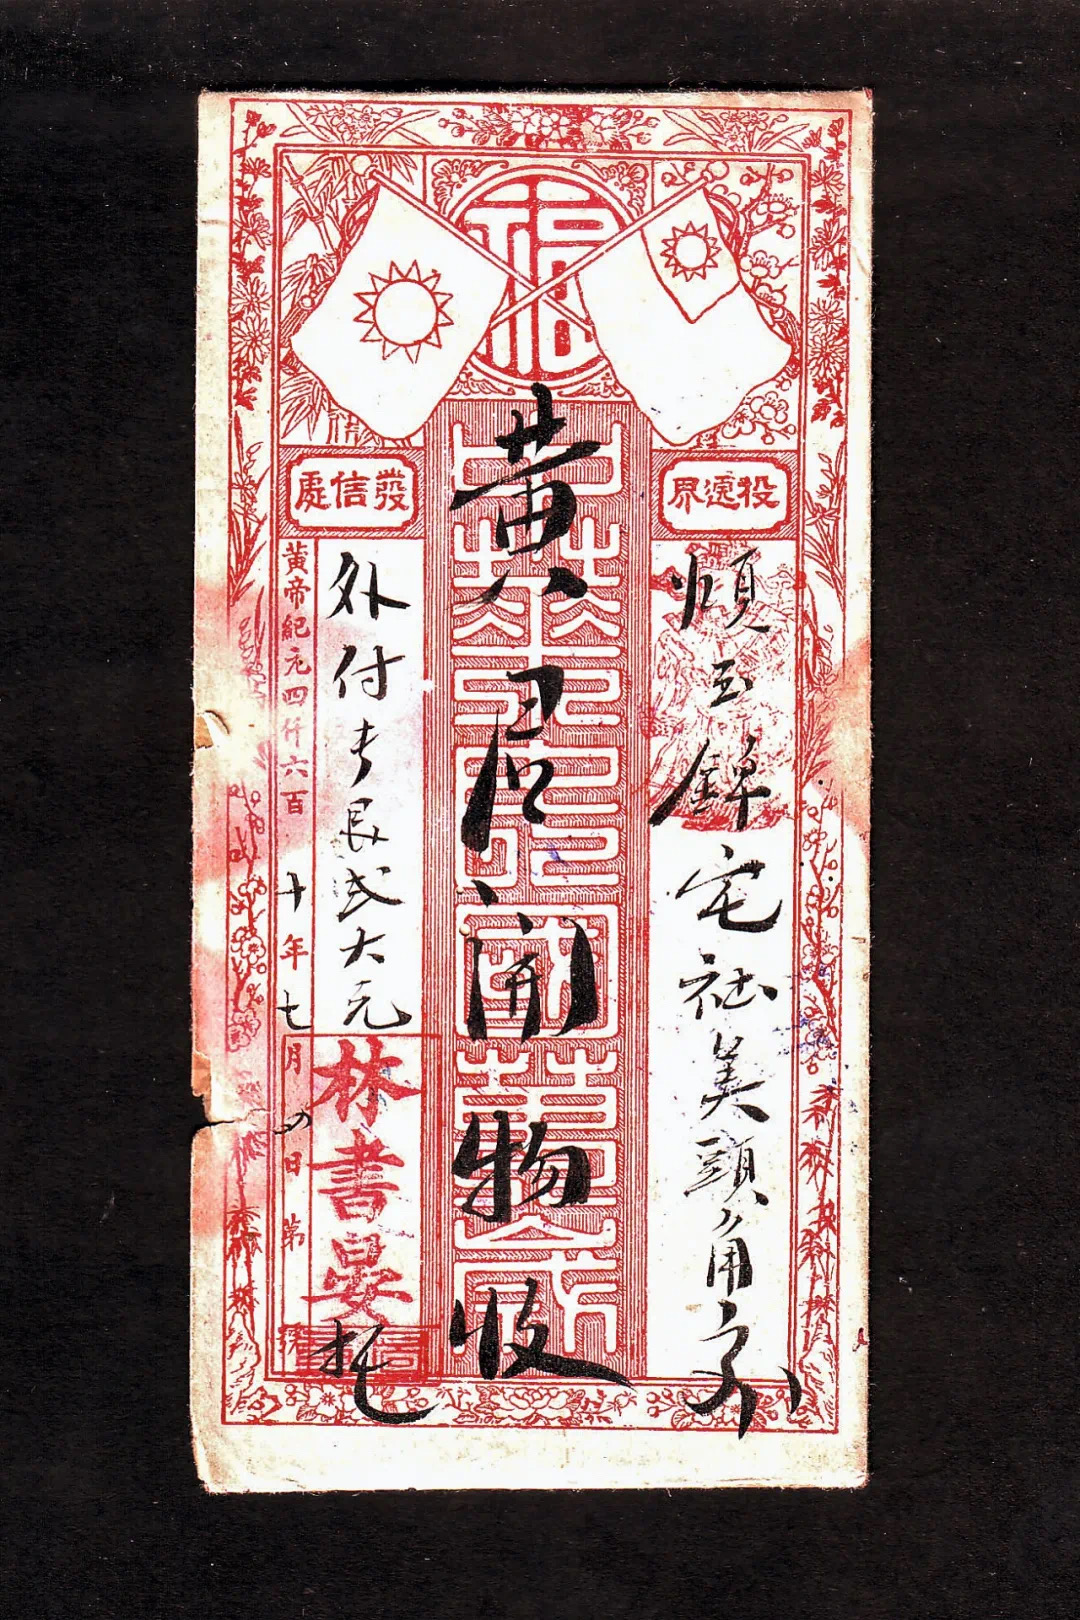 福
投遞界
煩玉錦宅社美頭角交
中華民國萬歲
黃君開物收
發信處
外付艮弍大元
林書晏托
黃帝紀元四仟六百十年七月四日第